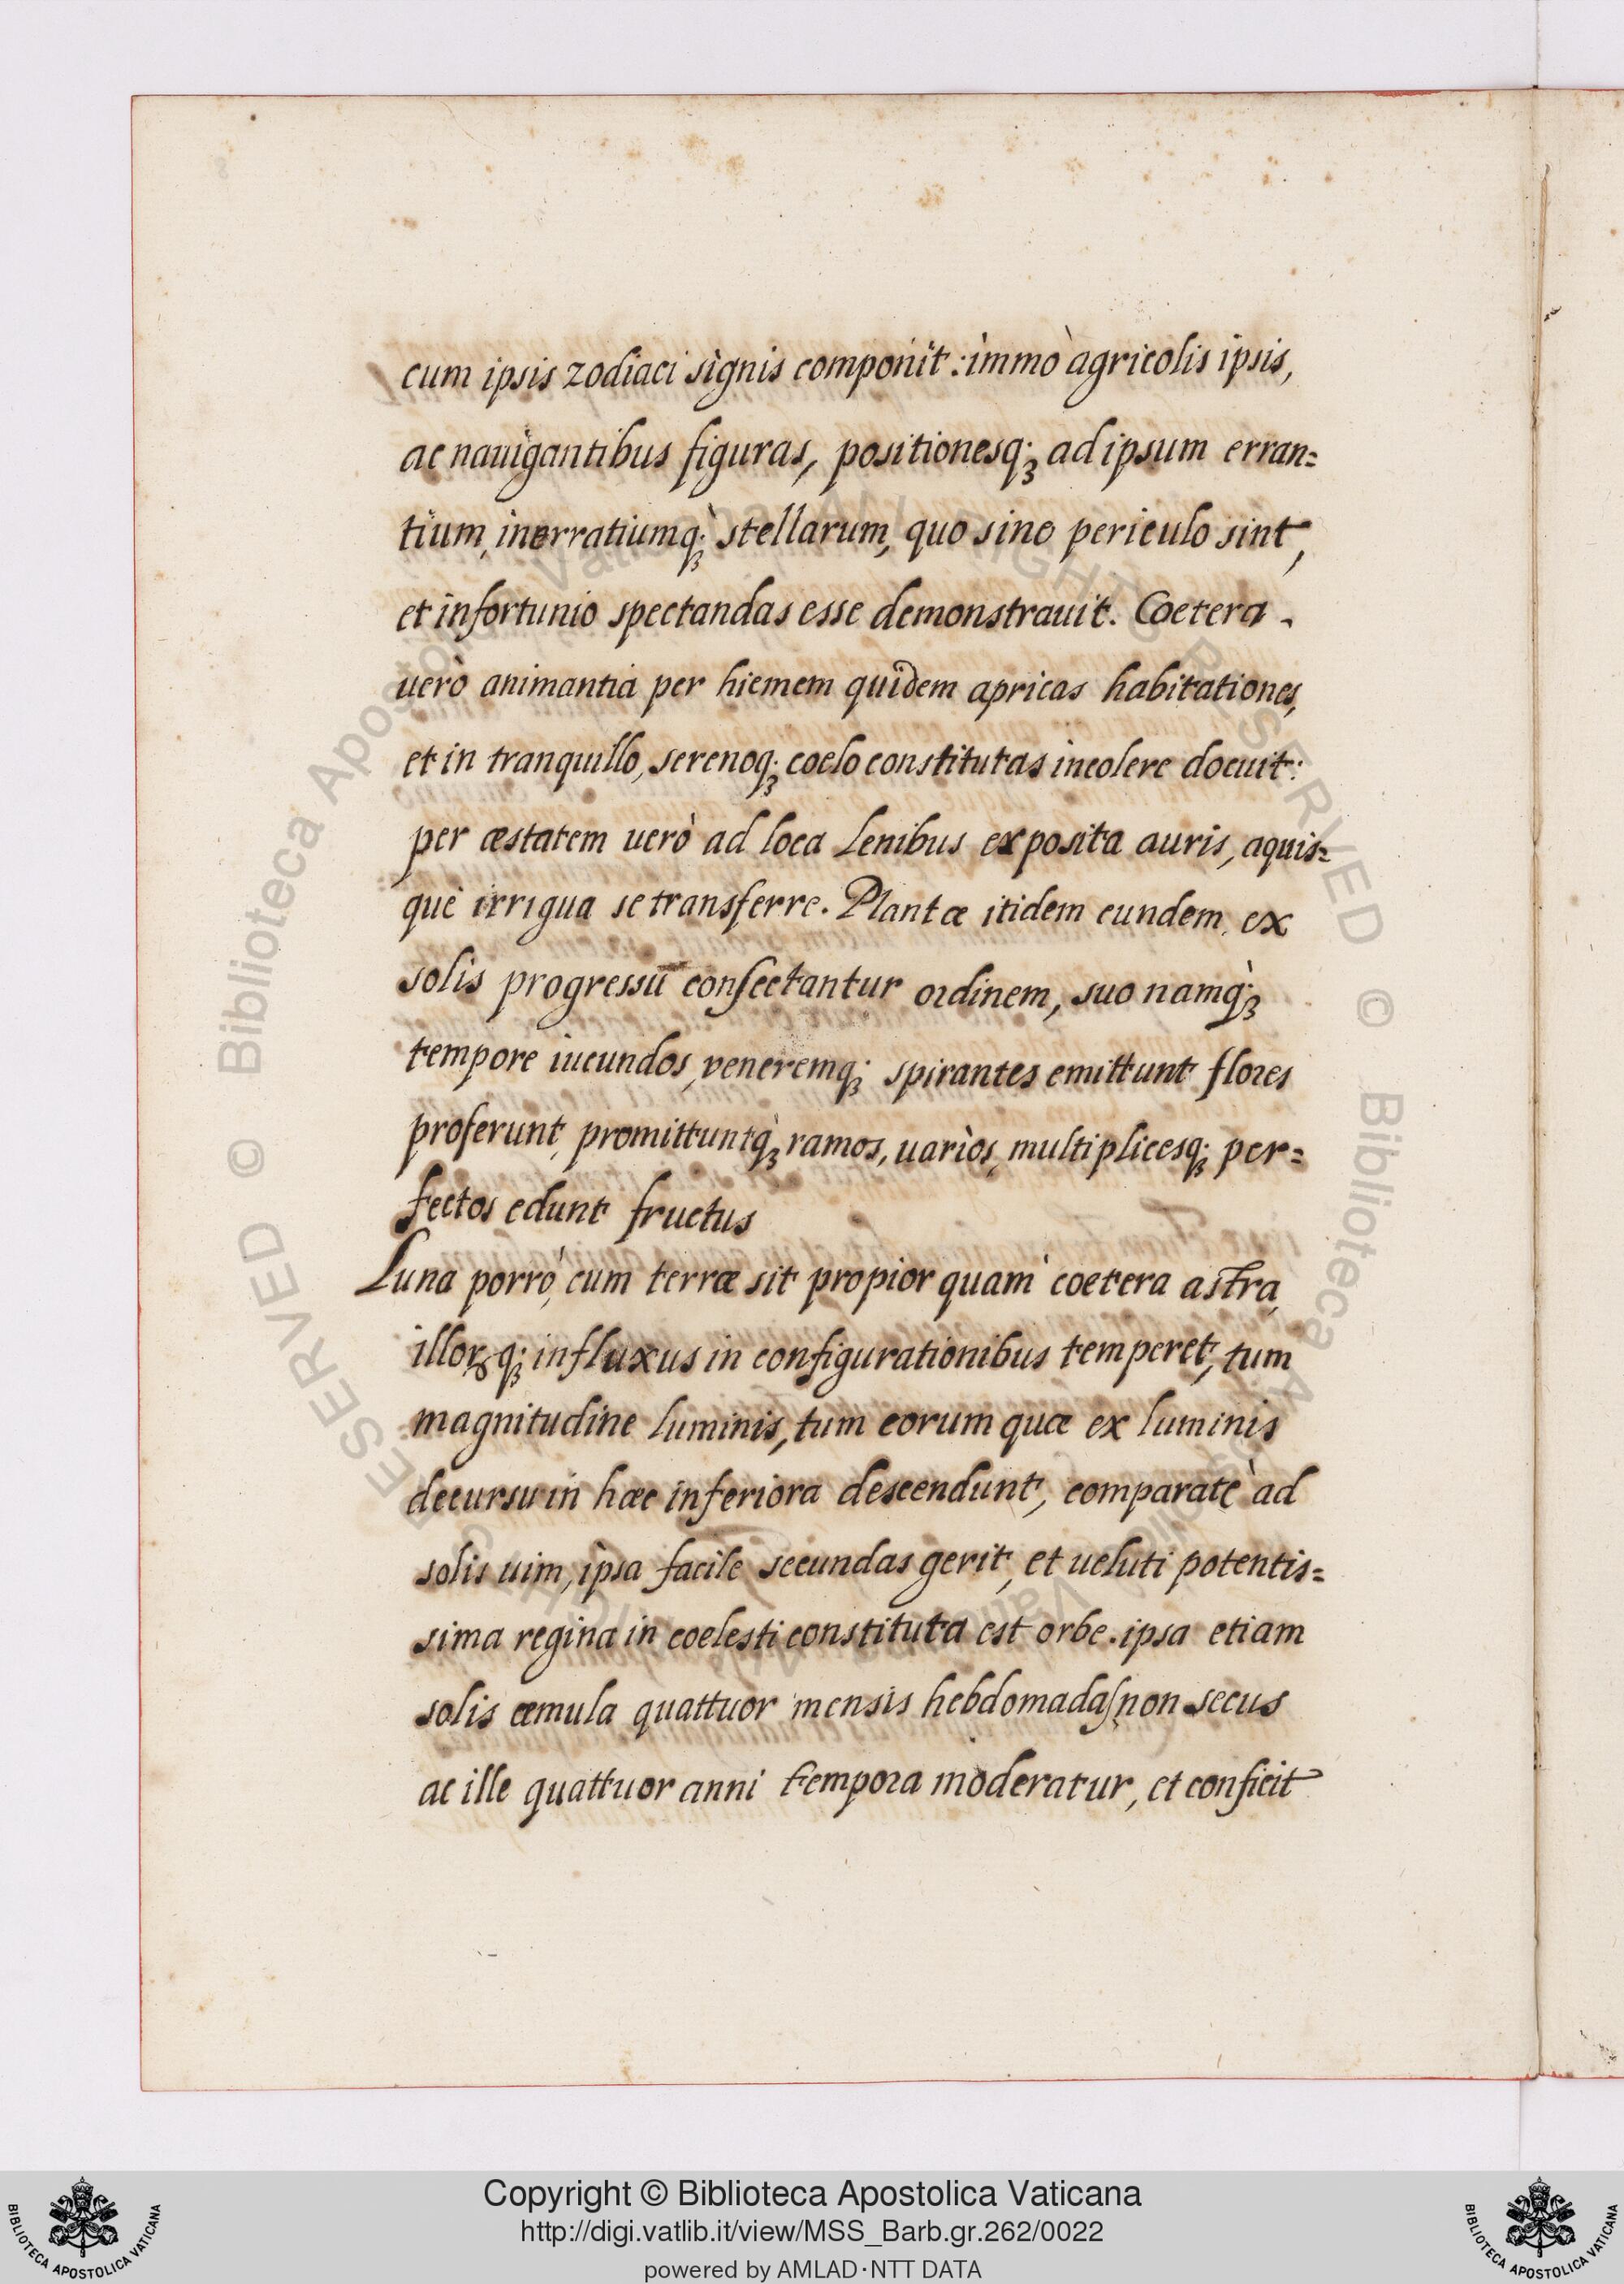 cum ipsis zodiaci signis componit: immò agricolis ipsis,
ac nauigantibus figuras, positionesq; ad ipsum erran=
tium, inerratiumq; stellarum, quo sine periculo sint,
et infortunio spectandas esse demonstrauit. Coetera
uerò animantia per hiemem quidem apricas habitationes,
et in tranquillo, serenoq; coelo constitutas incolere docuit:
per æstatem uerò ad loca lenibus exposita auris, aquis=
què irrigua se transferre. Plantæ itidem eundem, ex
solis progressu consectantur ordinem, suo namq;
tempore iucundos, veneremq; spirantes emittunt flores
proferunt, promittuntq; ramos, uarios, multiplicesq; per=
fectos edunt fructus
Luna porrò, cum terræ sit propior quam coetera astra,
illorꝝq; influxus in configurationibus temperet, tum
magnitudine luminis, tum eorum quæ ex luminis
decursu in hæc inferiora descendunt, comparatè ad
solis uim, ipsa facile secundas gerit, et ueluti potentis=
sima regina in coelesti constituta est orbe. ipsa etiam
solis æmula quattuor mensis hebdomadas non secus
ac ille quattuor anni tempora moderatur, et conficit
Copyright © Biblioteca Apostolica Vaticana
http://digi.vatlib.it/view/MSS_Barb.gr.262/0022
powered by AMLAD·NTT DATA
BIBLIOTECA APOSTOLICA VATICANA
BIBLIOTECA APOSTOLICA VATICANA